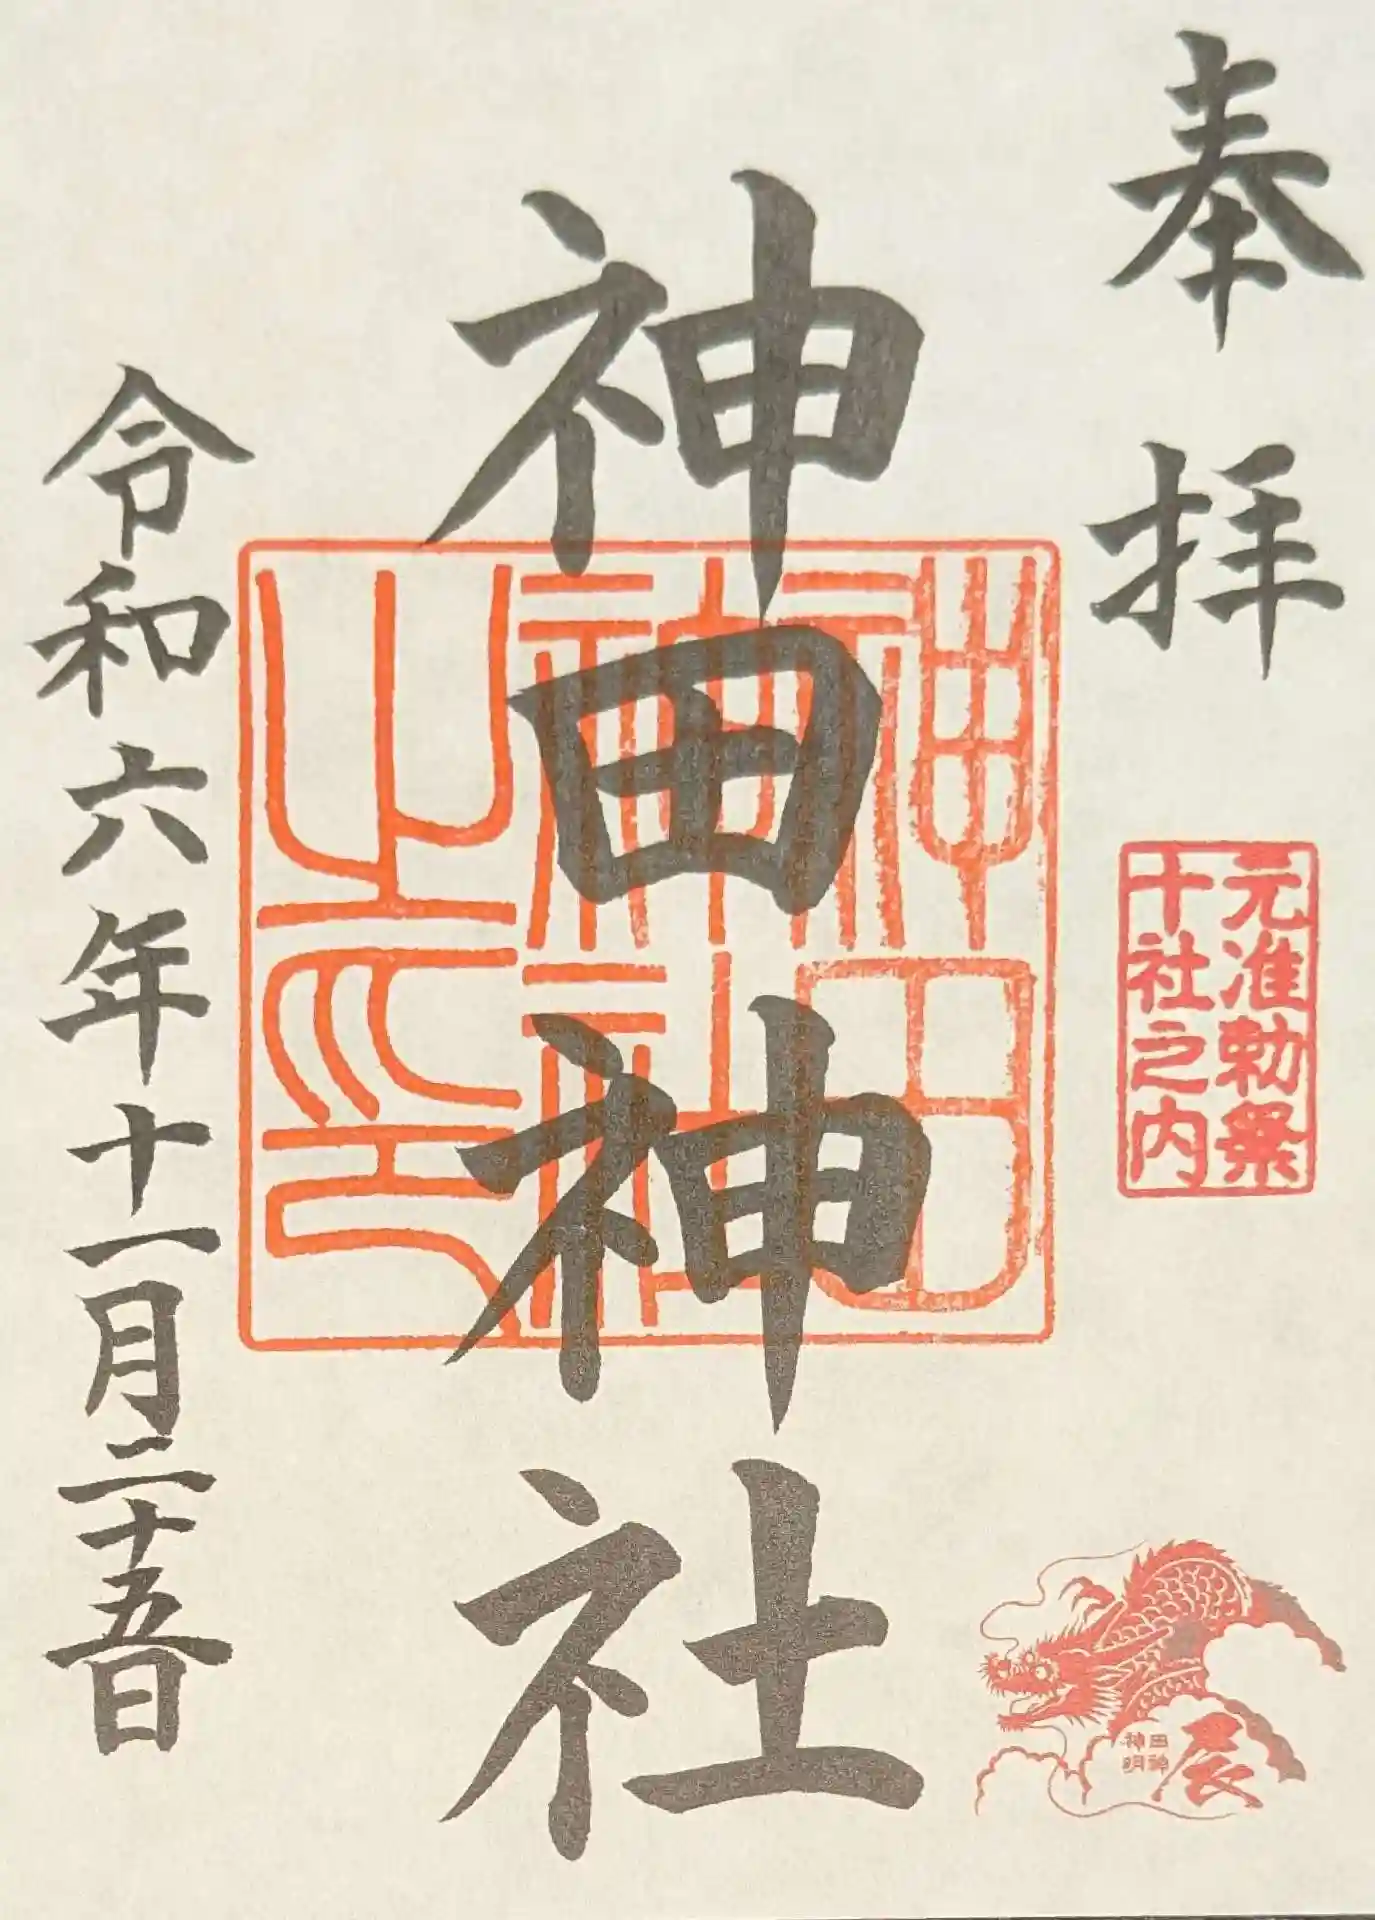 奉拝
元准勅祭
十社之内
辰
田神
神明
神田神社
神田
神社
之印
令和六年十一月二十五日